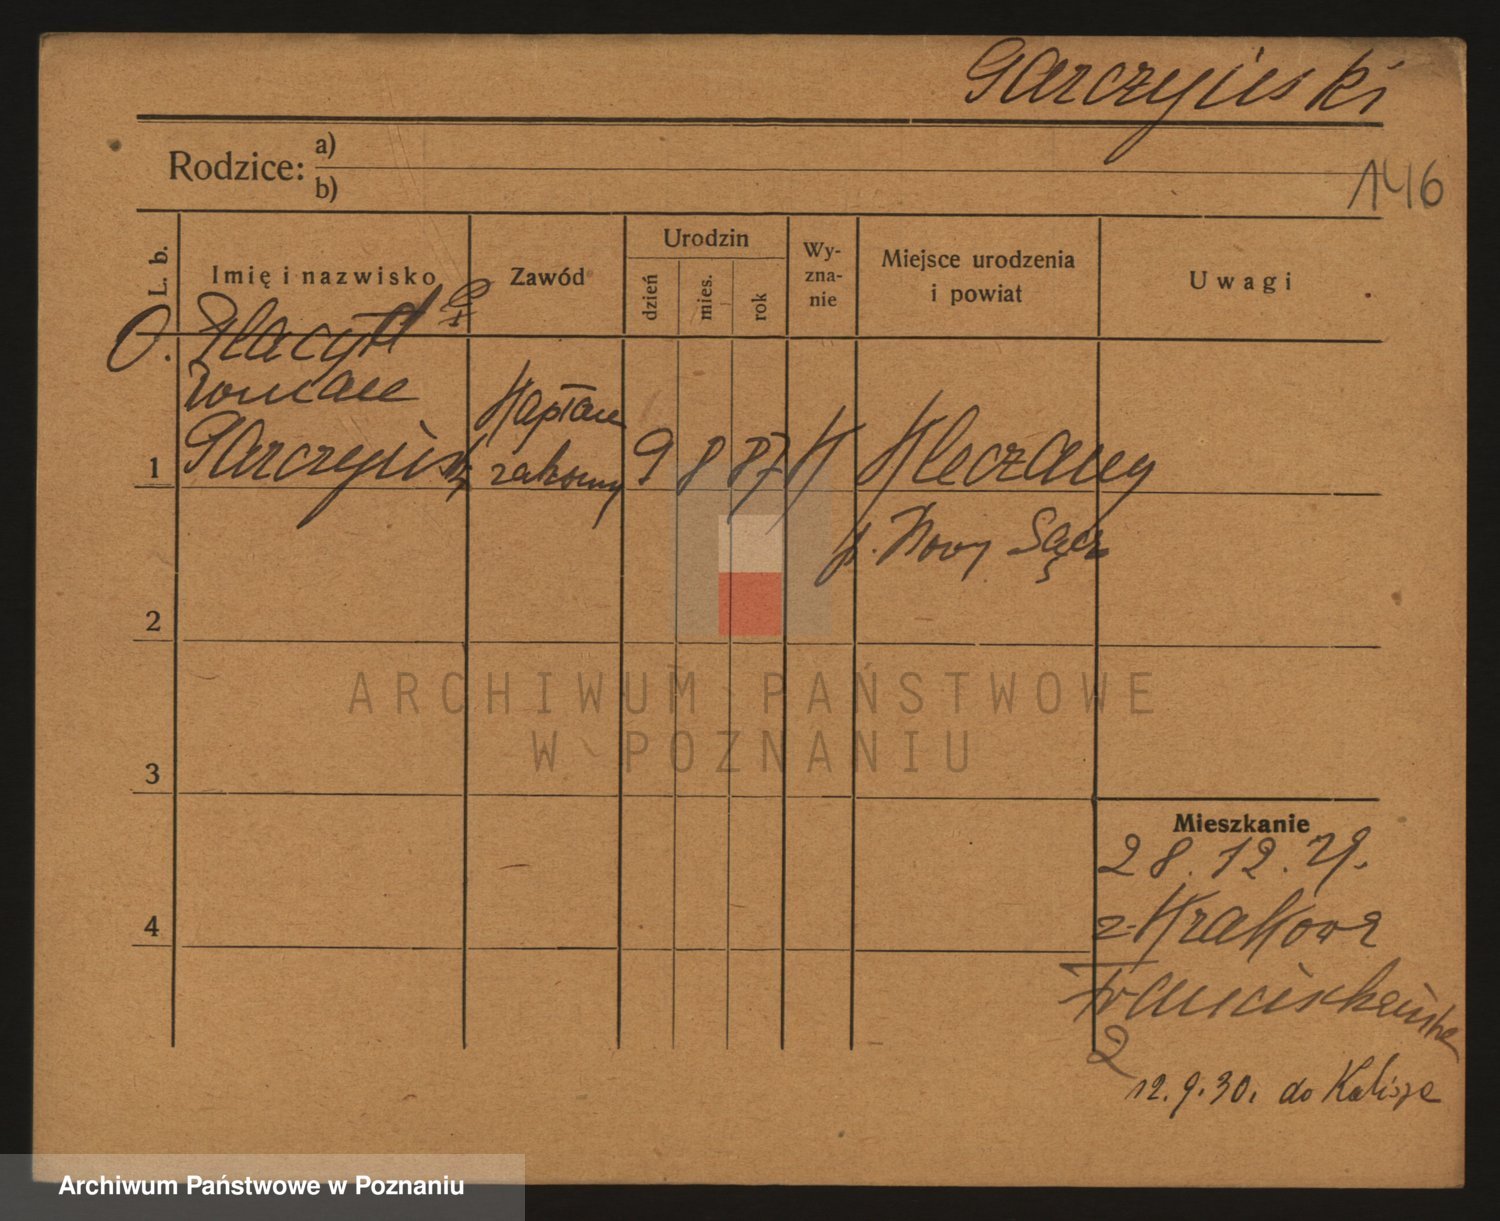 Garczyński
Rodzice: a)
b)
146
L. b.
Imię i nazwisko
Zawód
Urodzin
dzień
mies.
rok
Wy-
zna-
nie
Miejsce urodzenia
i powiat
Uwagi
O. Placyd
Roman
Garczyński
Kapłan
zakonny
1
9 8 87 K Kleczany
p. Nowy Sącz
2
3
4
Mieszkanie
28.12.29.
z Krakowa
Franciszkańska
2
12.9.30. do Kalisza
ARCHIWUM PAŃSTWOWE
W POZNANIU
Archiwum Państwowe w Poznaniu